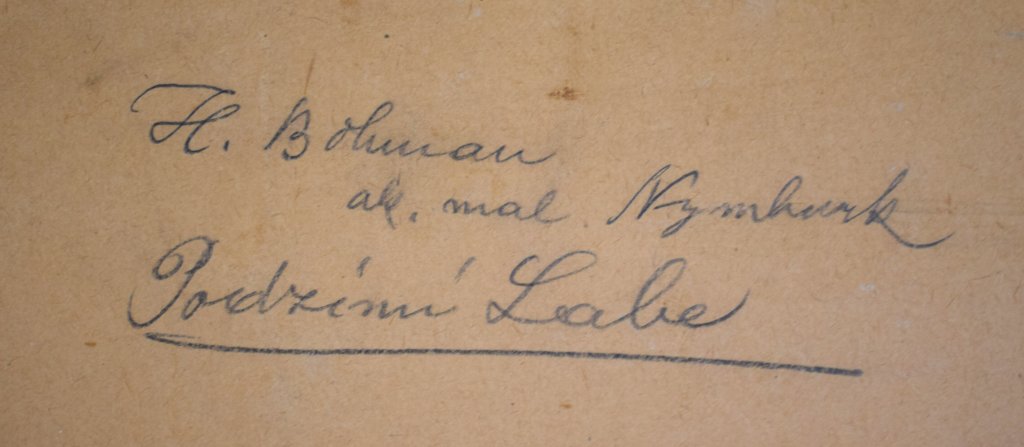 H. Bohman
ak. mal. Nymburk
Podzimní Labe